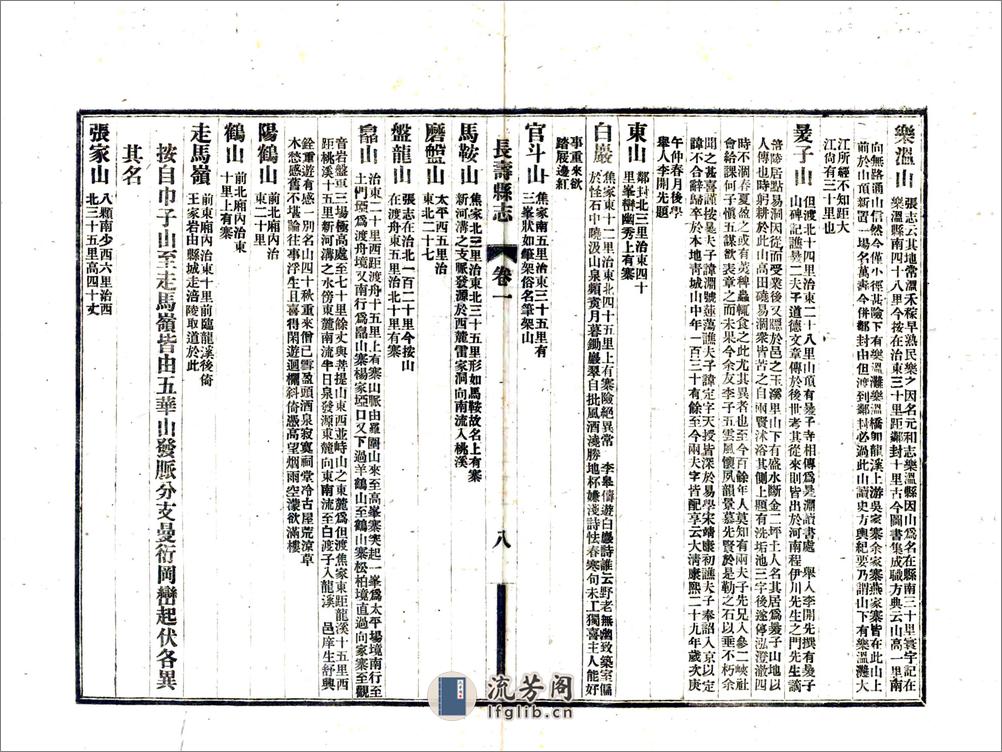 樂溫山
張志云其地常溫禾稼早熟民樂之因名元和志樂溫縣因山爲名在縣南三十里寰宇記在
樂溫縣南四十八里今按在治東三十里距鄰封十里古今圖書集成職方典云山高一里南
向無路通山信然今僅小徑甚險下有樂溫灘樂溫橋如龍溪上游吳家寨余家寨燕家寨皆在此山上
前於山頂新置一場名萬壽今併鄰封由但渡到鄰封必過此山讀史方輿紀要乃謂山下有樂溫灘大
江所經不知距大
江尚有三十里也
㬅子山
但渡北十四里治東二十八里山頂有㬅子寺相傳爲㬅淵讀書處 舉人李開先撰有㬅子
山碑記譙㬅二夫子道德文章傳於後世考其從來則皆出於河南程伊川先生之門先生謫
涪陵居點易洞從而受業後又隱於邑之玉溪里山下有盛水斷金二坪土人名其居爲㬅子山地以
人傳也時躬耕於此山高田磽易涸衆皆苦之自兩賢沐浴其側上題有洗垢池三字後遂停泓澄澈四
時不涸春夏盈之或有莠稗蟲輒食之此尤其異者也至今百餘年人莫知有兩夫子先兄入參二峽社
會給課何子愼五謀欲表章之而未果今余友李子五雲風懷夙韻景慕先賢於是勒之石以垂不朽余
聞之甚喜謹按㬅夫子諱淵號蓮蕩譙夫子諱定字天授皆深於易學宋靖康初譙夫子奉詔入京以定
諱不合辭歸卒於本地靑城山中年一百三十有餘至今兩夫子皆配享云大淸康熙二十九年歲次庚
午仲春月後學
舉人李開先題
東山
鄰封北三里治東四十
里峯巒幽秀上有寨
白巖
焦家東十二里治東北四十五里上有寨險絕異常 李皋儔遊白巖詩誰云野老無幽致築室偏
於怪石中曉汲山泉頫賓月暮鋤巖翠自批風酒淺勝地杯嫌淺詩怯春寒句未工獨喜主人能好
事重來欲
踏展邊紅
官斗山
焦家南五里治東三十五里有
三峯狀如筆架俗名筆架山
長壽縣志
卷一
八
馬鞍山
焦家北三里治東北三十五里形如馬鞍故名上有寨
新河溝之支脈發源於西麓雷家洞向南流入桃溪
磨盤山
太平西五里治
東北二十七
盤龍山
張志在治北一百二十里今按山
在渡舟東五里治北十里有寨
畾山
治東二十里西距渡舟十五里上有寨山脈由羅圍山來至高峯寨突起一峯爲太平場境南行至
土門埡爲渡舟境又南行爲畾山寨楊家埡口又下過羊鶴山至鶴山寨松柏境直過向家寨至觀
音岩盤亘三場極高處至七十里餘丈與菩提山東西並峙山之東麓爲但渡焦家東距龍溪十五里西
距桃溪十五里新河溝之水傍東麓南流半日泉發源東麓向東南流至白渡子入龍溪 邑庠生紓興
銓重遊有感一別名山四十秋重來僧已雪盈頭酒泉寂寞祠堂冷古屋荒涼草
木愁感舊不堪論往事浮生且喜得閑遊迴欄斜倚憑高望烟雨空濛欲滿樓
陽鶴山
前北廂內治
東二十里
鶴山
前北廂內治東
十里上有寨
走馬嶺
前東廂內治東十里前臨龍溪後倚
王家岩由縣城走涪陵取道於此
按自巾子山至走馬嶺皆由五華山發脈分支曼衍岡巒起伏各異
其名
張家山
八顆南少西六里治西
北三十五里高四十丈
流芳阁
lfglib.cn